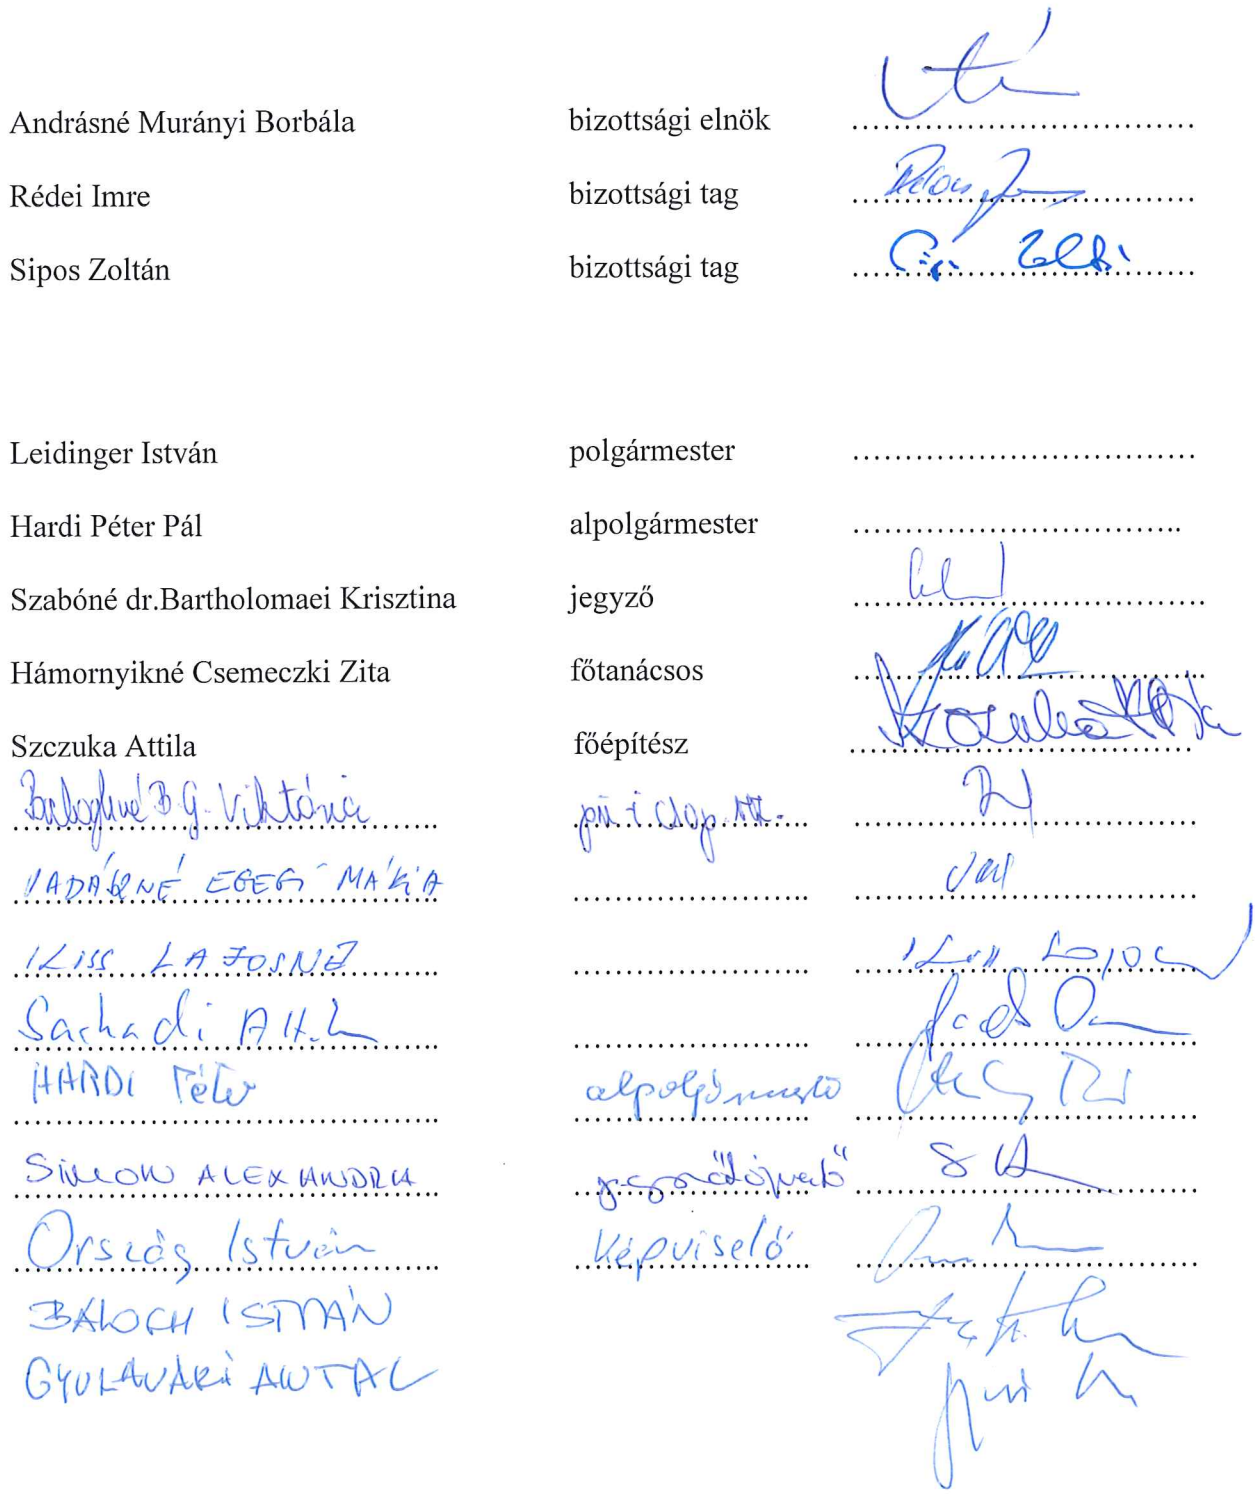 Andrásné Murányi Borbála bizottsági elnök ................................
Rédei Imre bizottsági tag ................................
Sipos Zoltán bizottsági tag ................................
Leidinger István polgármester ................................
Hardi Péter Pál alpolgármester ...............................
Szabóné dr.Bartholomaei Krisztina jegyző .................................
Hámornyikné Csemeczki Zita főtanácsos .................................
Szczuka Attila főépítész ................................
Baloghné B. G. Viktória
VADÁSZNÉ EGEGI MÁRIA
KISS LAJOSNÉ Kiss Lajosné
Sarkadi Attila
HARDI Péter alpolgármester
SIMON ALEXANDRA
Ország István képviselő
BALOGH ISTVÁN
GYULAVÁRI ANTAL